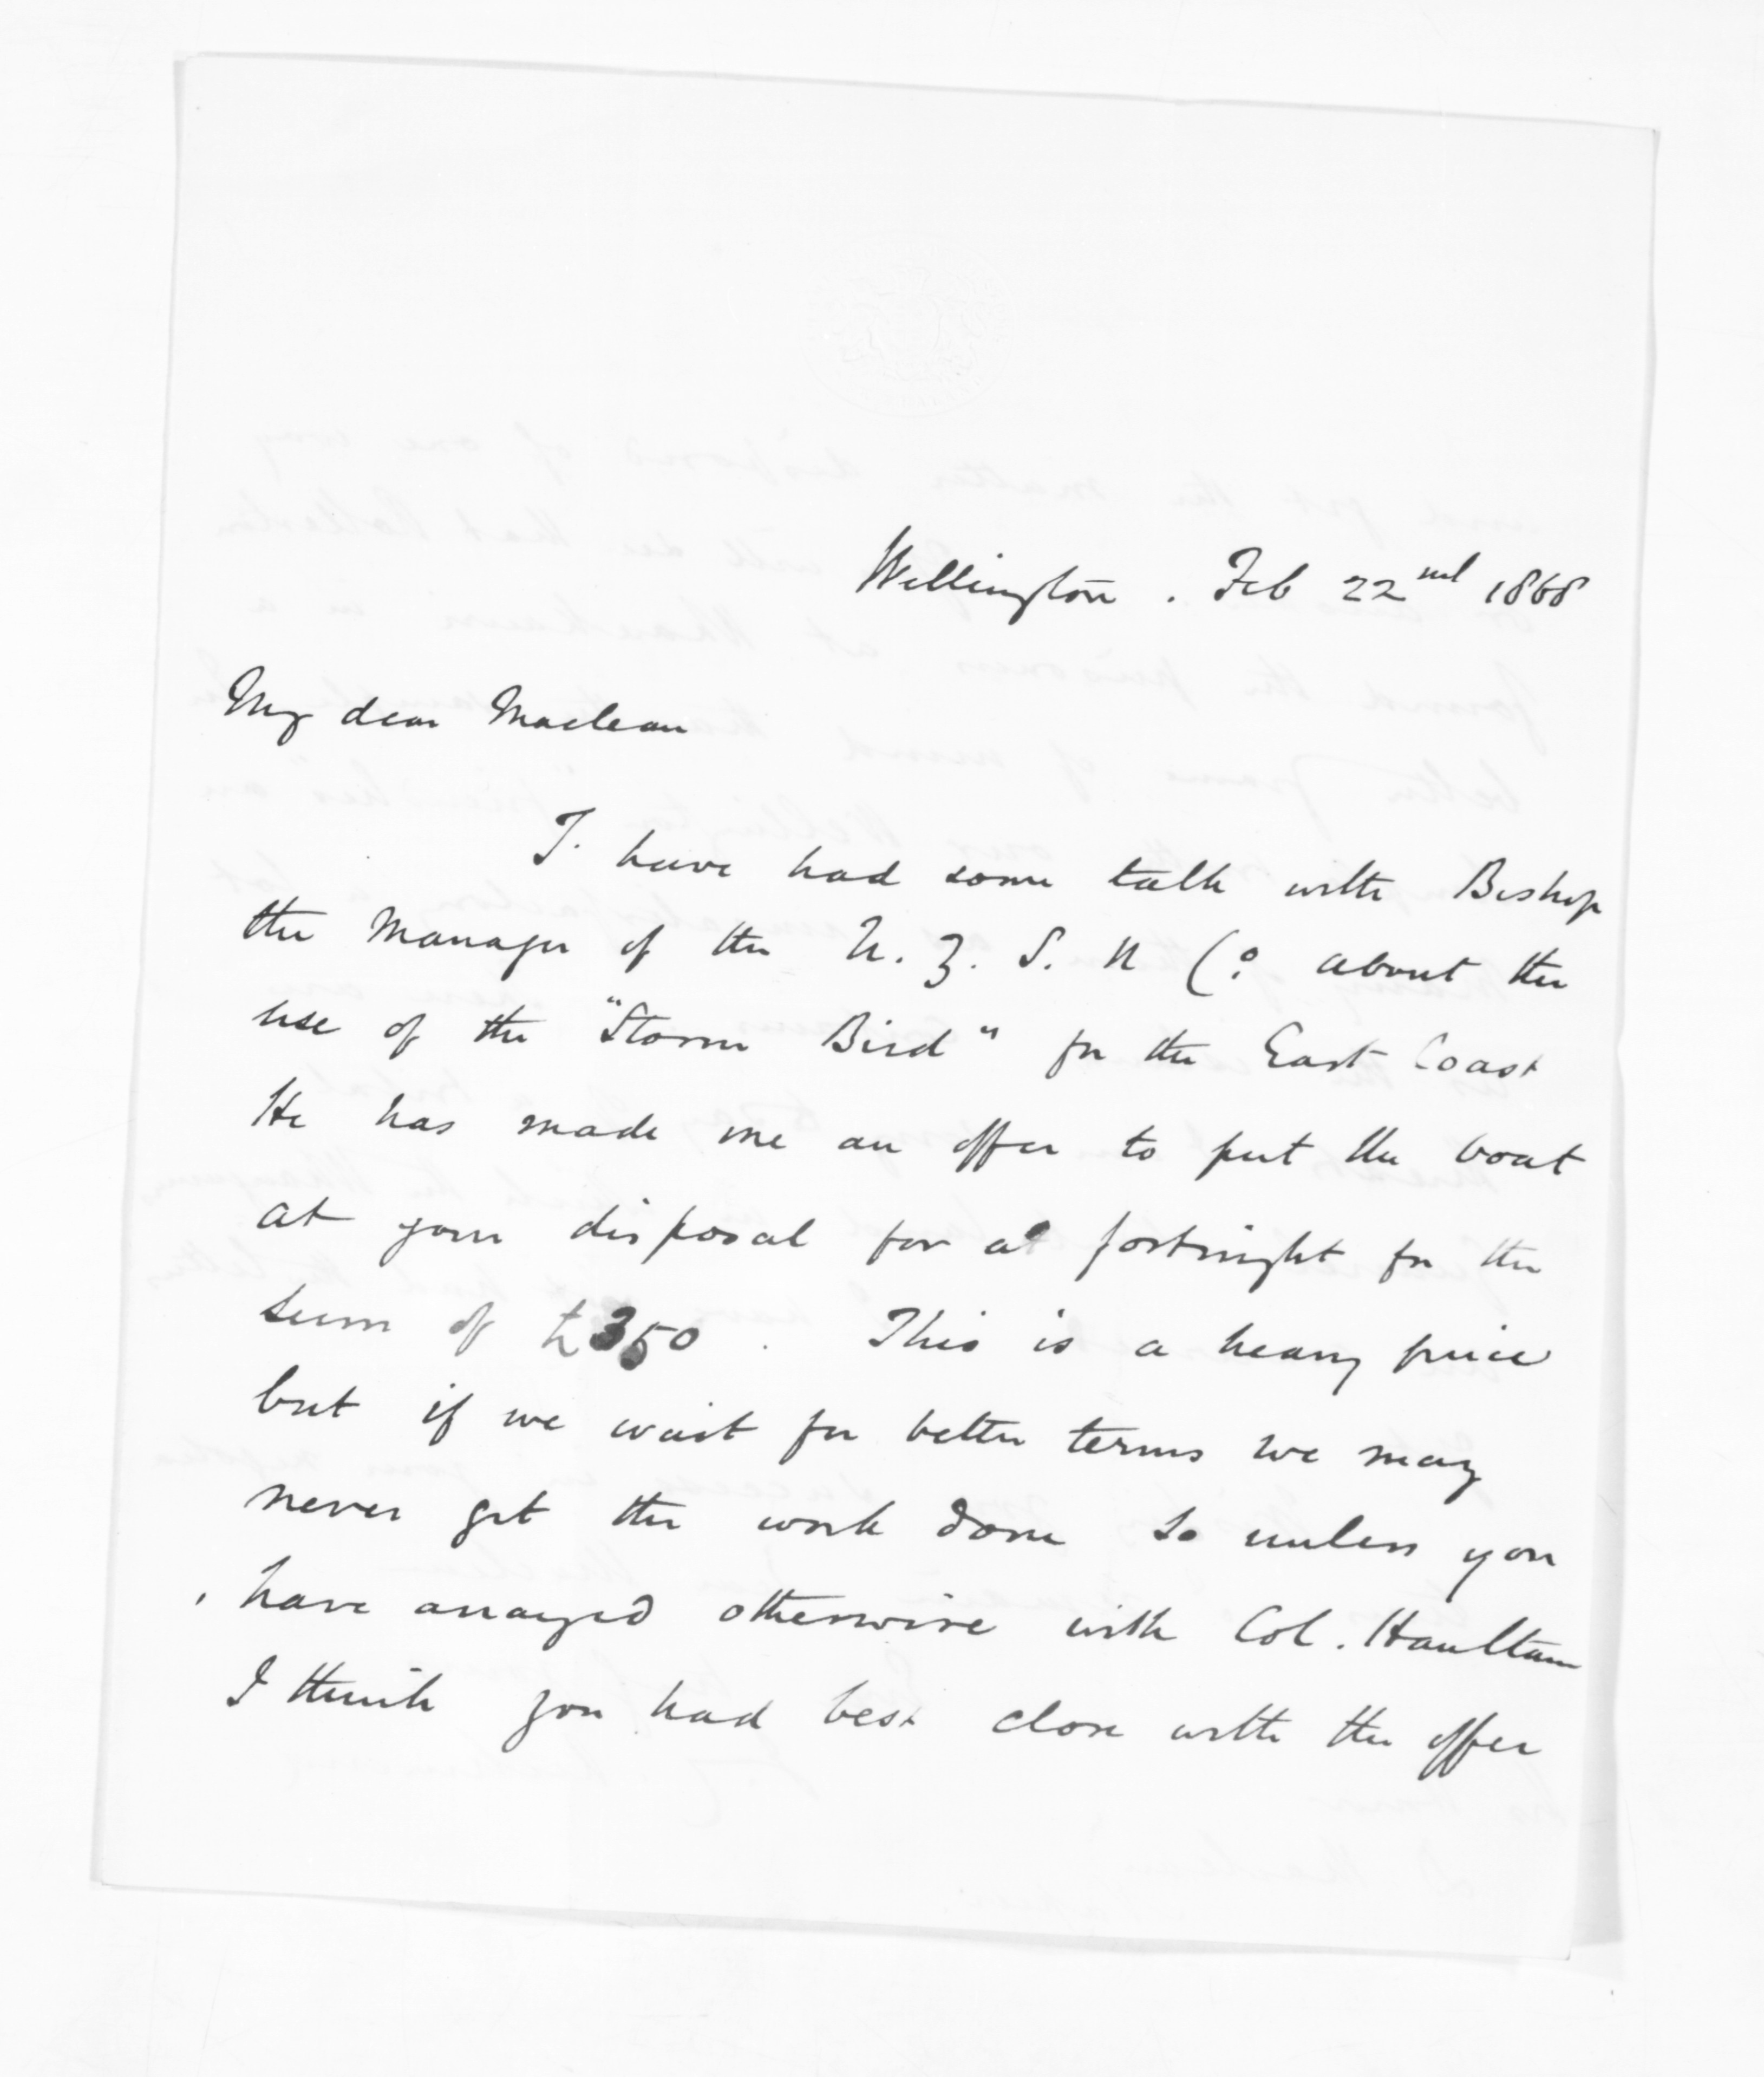 Wellington. Feb 22nd 1868
My dear Maclean
I have had some talk with Bishop
the Manager of the N. Z. S. N Co. about the
use of the "Storm Bird" for the East Coast
He has made me an offer to put the boat
at your disposal for a fortnight for the
sum of £350. This is a heavy price
but if we wait for better terms we may
never get the work done so unless you
have arranged otherwise with Col. Haultain
I think you had best close with the offer